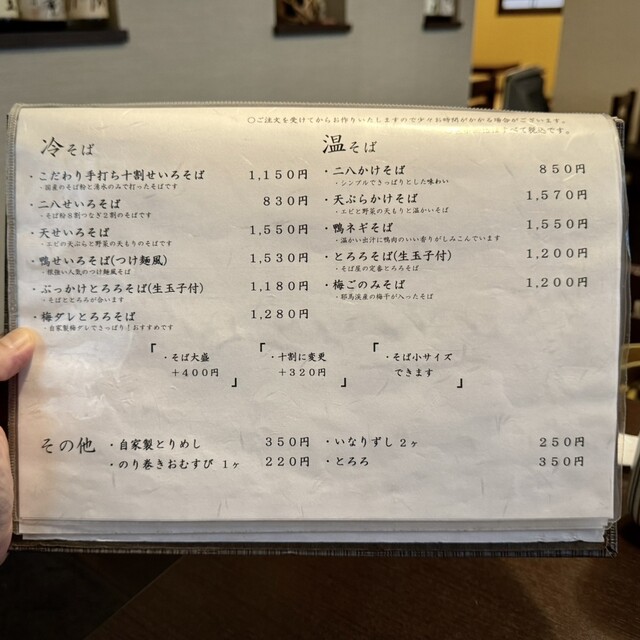 〇ご注文を受けてからお作りいたしますので少々お時間がかかる場合がございます。
すべて税込です。
冷そば
・こだわり手打ち十割せいろそば 1,150円
・国産のそば粉と湧水のみで打ったそばです
・二八せいろそば 830円
・そば粉8割つなぎ2割のそばです
・天せいろそば 1,550円
・エビの天ぷらと野菜の天もりのそばです
・鴨せいろそば(つけ麺風) 1,530円
・根強い人気のつけ麺風そば
・ぶっかけとろろそば(生玉子付) 1,180円
・そばととろろが合います
・梅ダレとろろそば 1,280円
・自家製梅ダレでさっぱり!おすすめです
温そば
・二八かけそば 850円
・シンプルでさっぱりとした味わい
・天ぷらかけそば 1,570円
・エビと野菜の天もりと温かいそば
・鴨ネギそば 1,550円
・温かい出汁に鴨肉のいい香りがしみこんでいます
・とろろそば(生玉子付) 1,200円
・そば屋の定番とろろそば
・梅ごのみそば 1,200円
・耶馬渓産の梅干が入ったそば
「・そば大盛
+400円」
「・十割に変更
+320円」
「・そば小サイズ
できます」
その他
・自家製とりめし 350円
・のり巻きおむすび 1ヶ 220円
・いなりずし 2ヶ 250円
・とろろ 350円